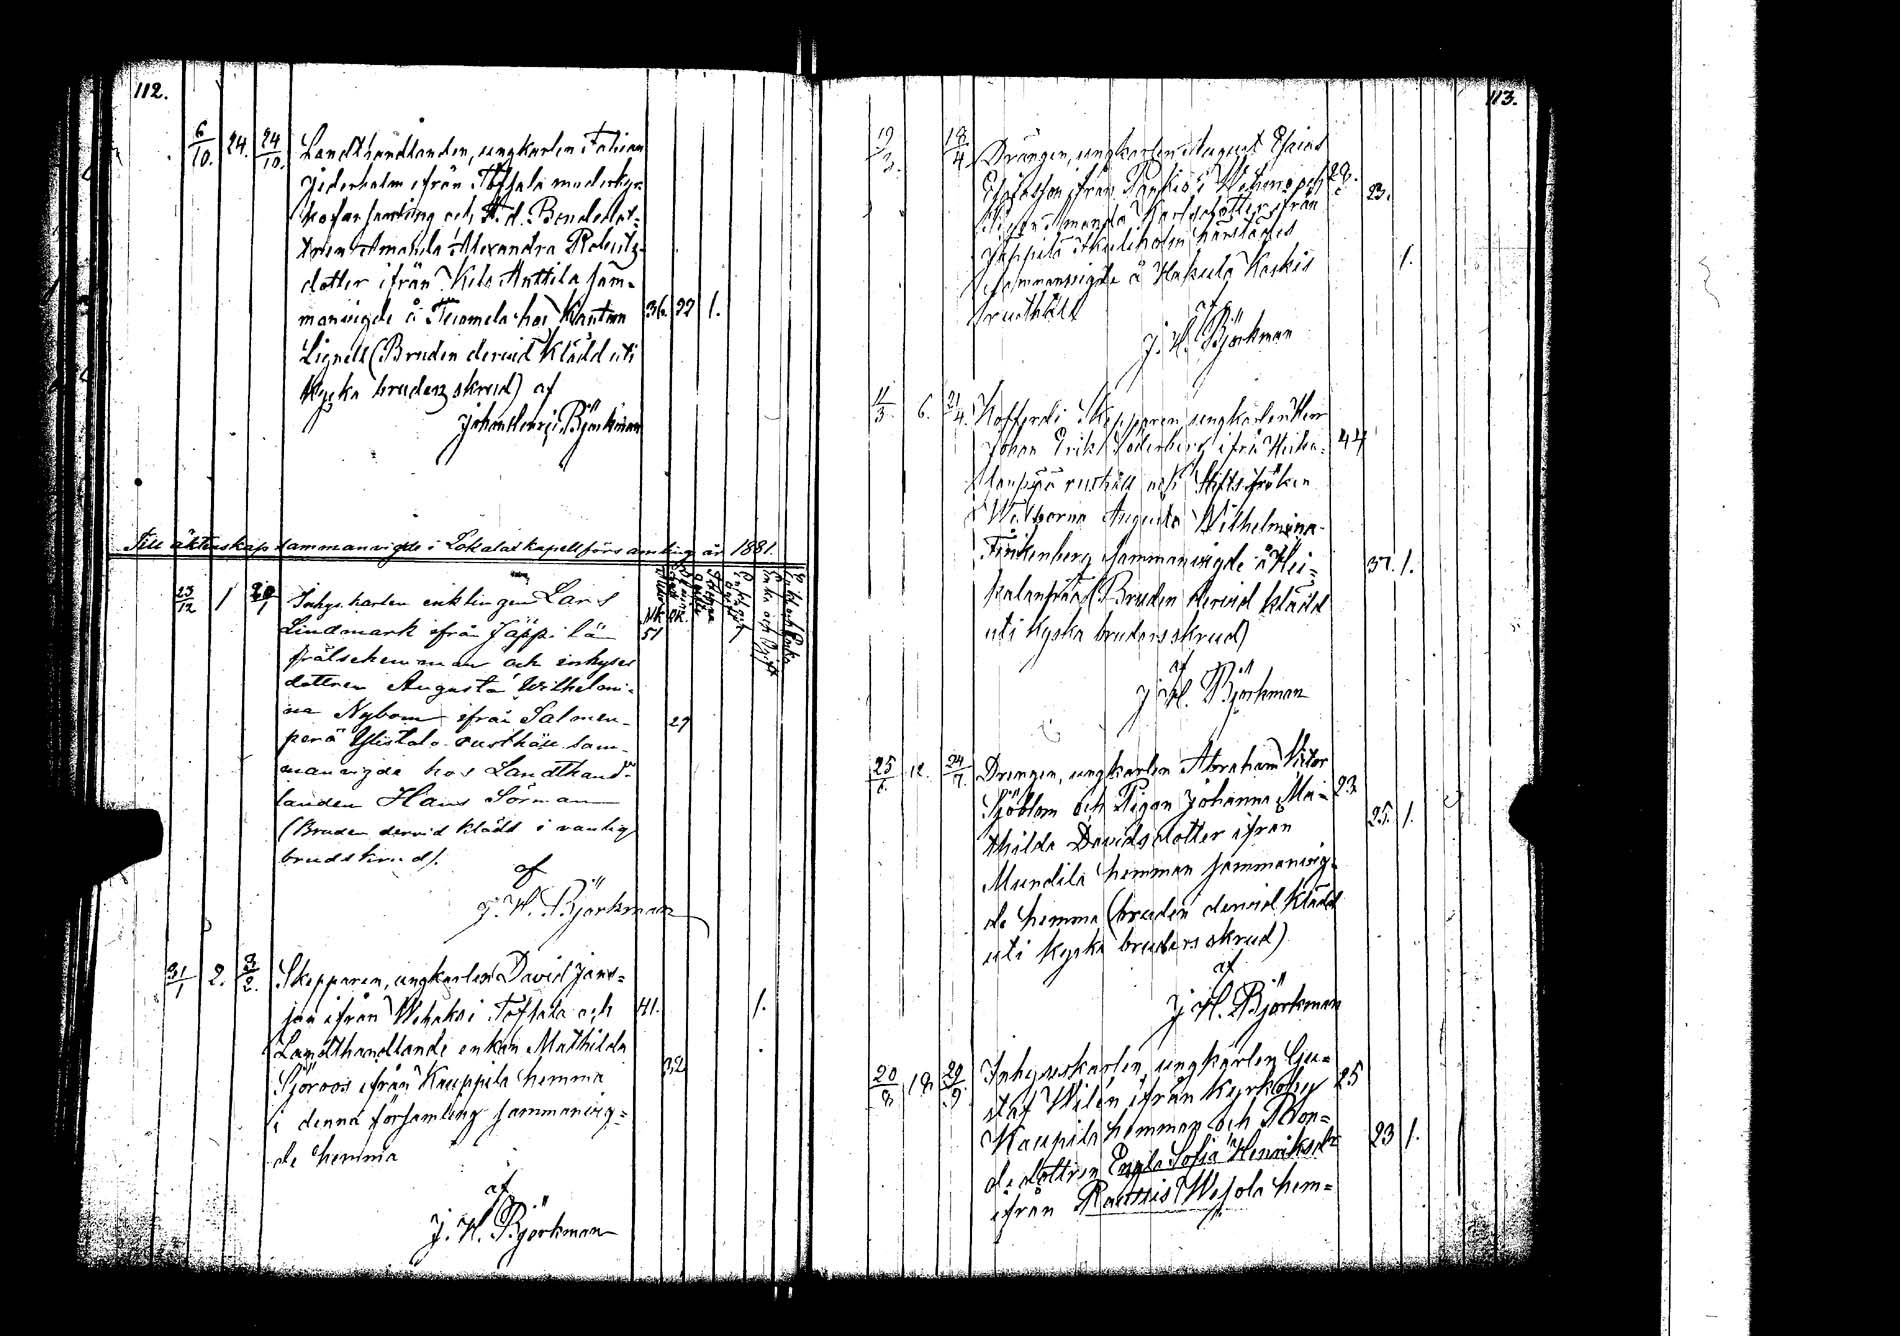 112.
6/10. 24. 24/10. Landthandlanden, ungkarlen Fabian
Jederholm ifrån Töfsala moderkyr-
koförsamling och Bondedot-
tren Amanda Alexandra Robertz-
dotter ifrån Kels Anttila sam-
manvigde å Tuomela hos Kantorn 36. 22 1.
Lignell (Bruden dervid klädd uti
kyska brudens skrud) af
Johan Henric Björkman
Till äktenskap sammanvigde i Lokalaks kapellförsamling år 1881.
23/12 1 Inhys karlen enklingen Lars
Lindmark ifrån Jäppilä 51
frälsehemman och inhyses
dottren Augusta Wilhelmi-
na Nybom ifrån Salmen- 29
perä Ylistalo rusthåll sam-
manvigde hos Landthand-
landen Hans Sörman
(Bruden dervid klädd i vanlig
brudskrud).
af
J. H. Björkman
31/1 2. 3/2. Skepparen, ungkarlen David Jans-
son ifrån Wehaksi Töfsala och 41. 1.
Landthandlande enkan Mathilda
Sjöroos ifrån Kauppila hemma 32
i denna församling sammanvig-
de hemma
af
J. H. Björkman
113.
19/3. 18/4 Drängen, ungkarlen August Esaias
Esaiasson ifrån Pankio i Wehmo och 28.
Pigan Amanda Karlsdotter ifrån 23.
Jäppilä härstädes 1.
sammanvigde å Hakula Kaskis
rusthåll
af
J. H. Björkman
11/3. 6. 21/4. Kofferdi Skepparen, ungkarlen Herr
Johan Erik Söderberg ifrån Heika- 44
lanpää rusthåll och Stiftsfröken
Welborna Augusta Wilhelmina
Finkenberg sammanvigde å Hei- 37. 1.
kalanpää (Bruden dervid klädd
uti kyska bruders skrud)
af
J. H. Björkman
25/6. 12. 24/7. Drengen, ungkarlen Abraham Victor
Sjöblom och Pigan Johanna Ma- 23
thilda Davidsdotter ifrån 25. 1.
Mundila hemman sammanvig-
de hemma (bruden dervid klädd
uti kyska bruders skrud)
af
J. H. Björkman
20/8 18 29/9. Inhyseskarlen, ungkarlen Gu-
staf Wilén ifrån Kyrkoby 25
Kaupila hemman och Bon-
de dottren Engla Sofia Henriksdr 23 1.
ifrån Rautis Wesola hem-